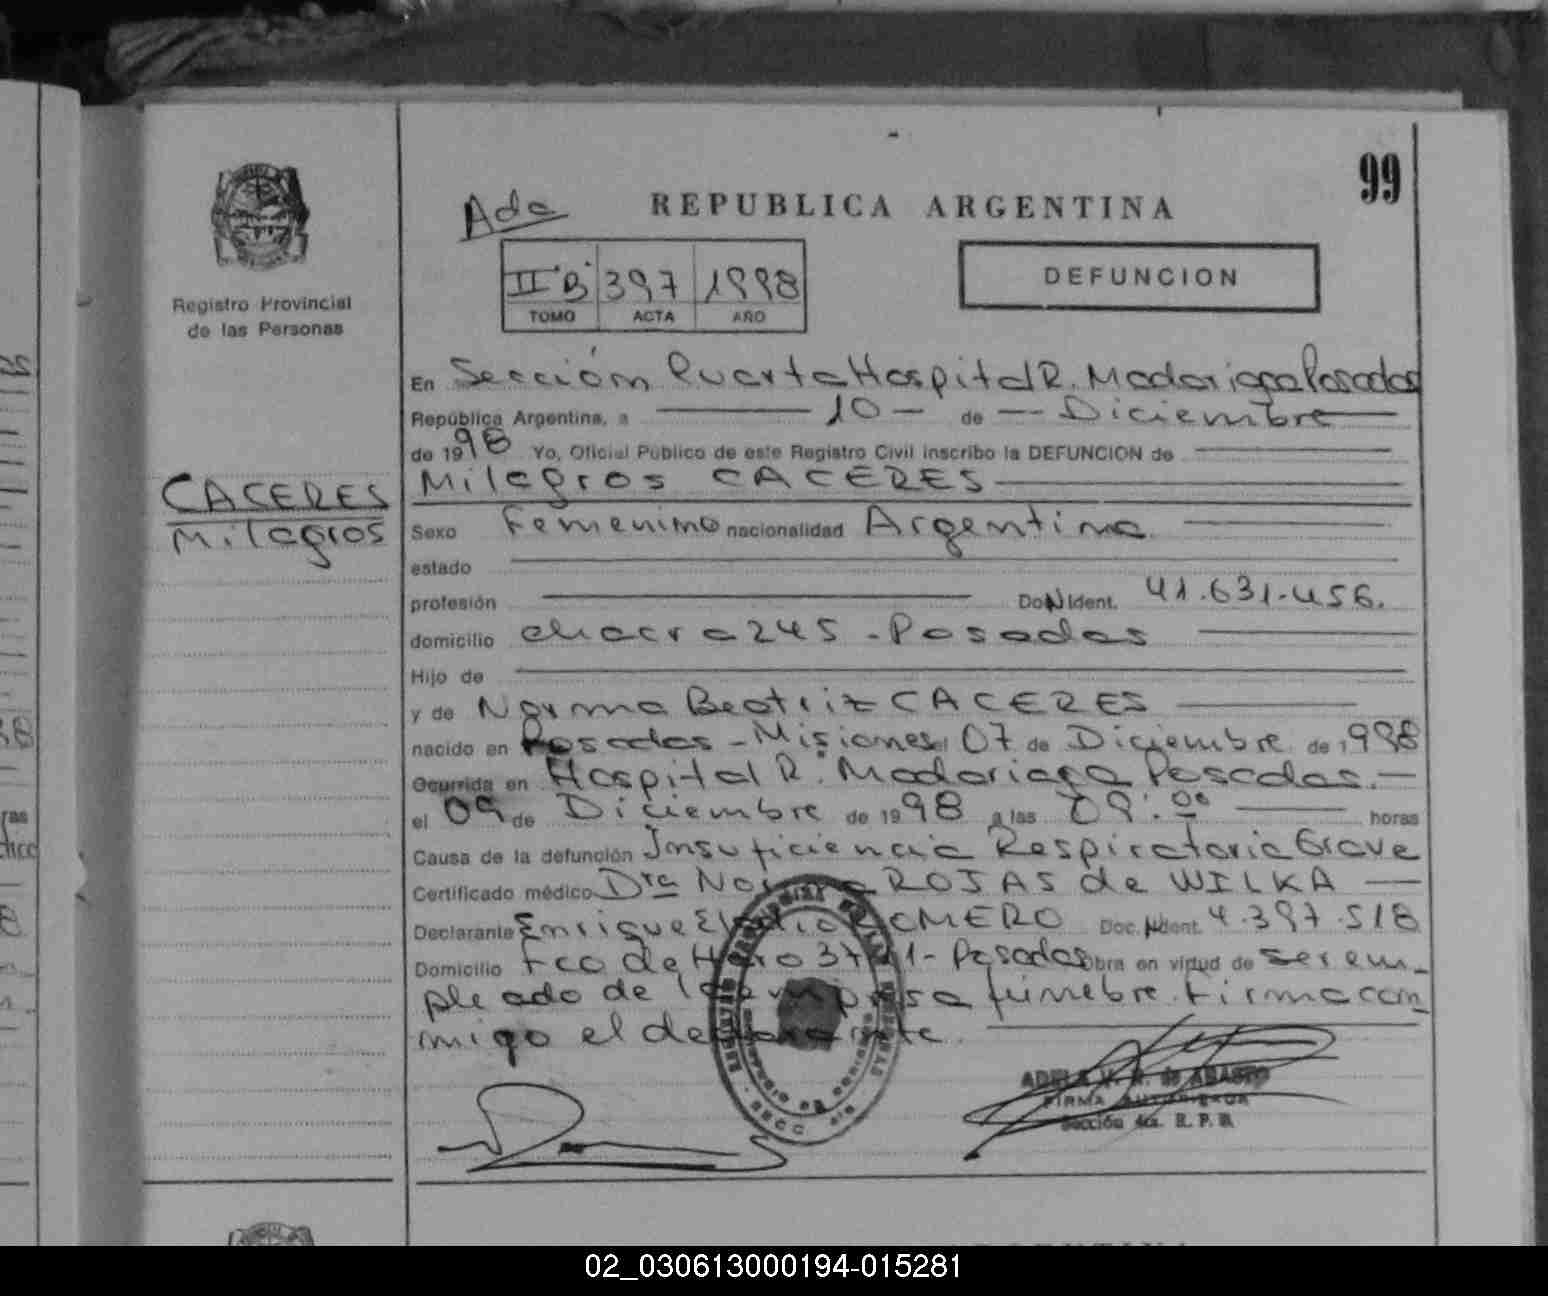 99
Ada
REPUBLICA ARGENTINA
II "B" 397 1998
TOMO ACTA AÑO
DEFUNCION
Registro Provincial
de las Personas
CACERES
Milagros
En Sección Cuarta Hospital R. Madariaga Posadas
República Argentina, a 10 de Diciembre
de 1998 Yo, Oficial Público de este Registro Civil inscribo la DEFUNCION de
Milagros CACERES
Sexo Femenino nacionalidad Argentina
estado
profesión Do N Ident. 41.631.456.
domicilio chacra 245 - Posadas
Hijo de
y de Norma Beatriz CACERES
nacido en Posadas - Misiones el 07 de Diciembre de 1998
Ocurrida en Hospital R. Madariaga Posadas.-
el 09 de Diciembre de 1998 a las 09:00 horas
Causa de la defunción Insuficiencia Respiratoria Grave
Certificado médico Dra ROJAS de WILKA
Declarante Enrique ROMERO Doc. N Ident. 4.397.518
Domicilio Fco de Haro - Posadas Obra en virtud de ser em-
pleado de la empresa fúnebre. Firma con-
migo el declarante.
ADELA V. R. de
FIRMA AUTORIZADA
Sección 4ta. R. P. P.
02_030613000194-015281